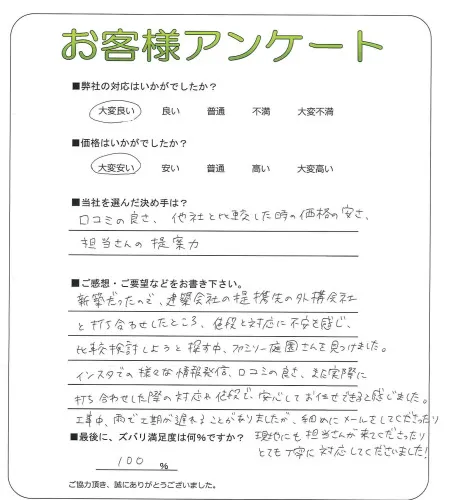 お客様アンケート
■弊社の対応はいかがでしたか？
大変良い 良い 普通 不満 大変不満
■価格はいかがでしたか？
大変安い 安い 普通 高い 大変高い
■当社を選んだ決め手は？
口コミの良さ、他社と比較した時の価格の安さ、
担当さんの提案力
■ご感想・ご要望などをお書き下さい。
新築だったので、建築会社の提携先の外構会社
と打ち合わせしたところ、値段と対応に不安を感じ、
比較検討しようと探す中、ファミリー庭園さんを見つけました。
インスタでの様々な情報発信、口コミの良さ、また実際に
打ち合わせした際の対応や値段で、安心してお任せできると感じました。
工事中、雨で工期が遅れることがありましたが、細めにメールをしてくださったり
現地にも担当さんが来てくださったり
とても丁寧に対応してくださいました!
■最後に、ズバリ満足度は何%ですか？
100 %
ご協力頂き、誠にありがとうございました。